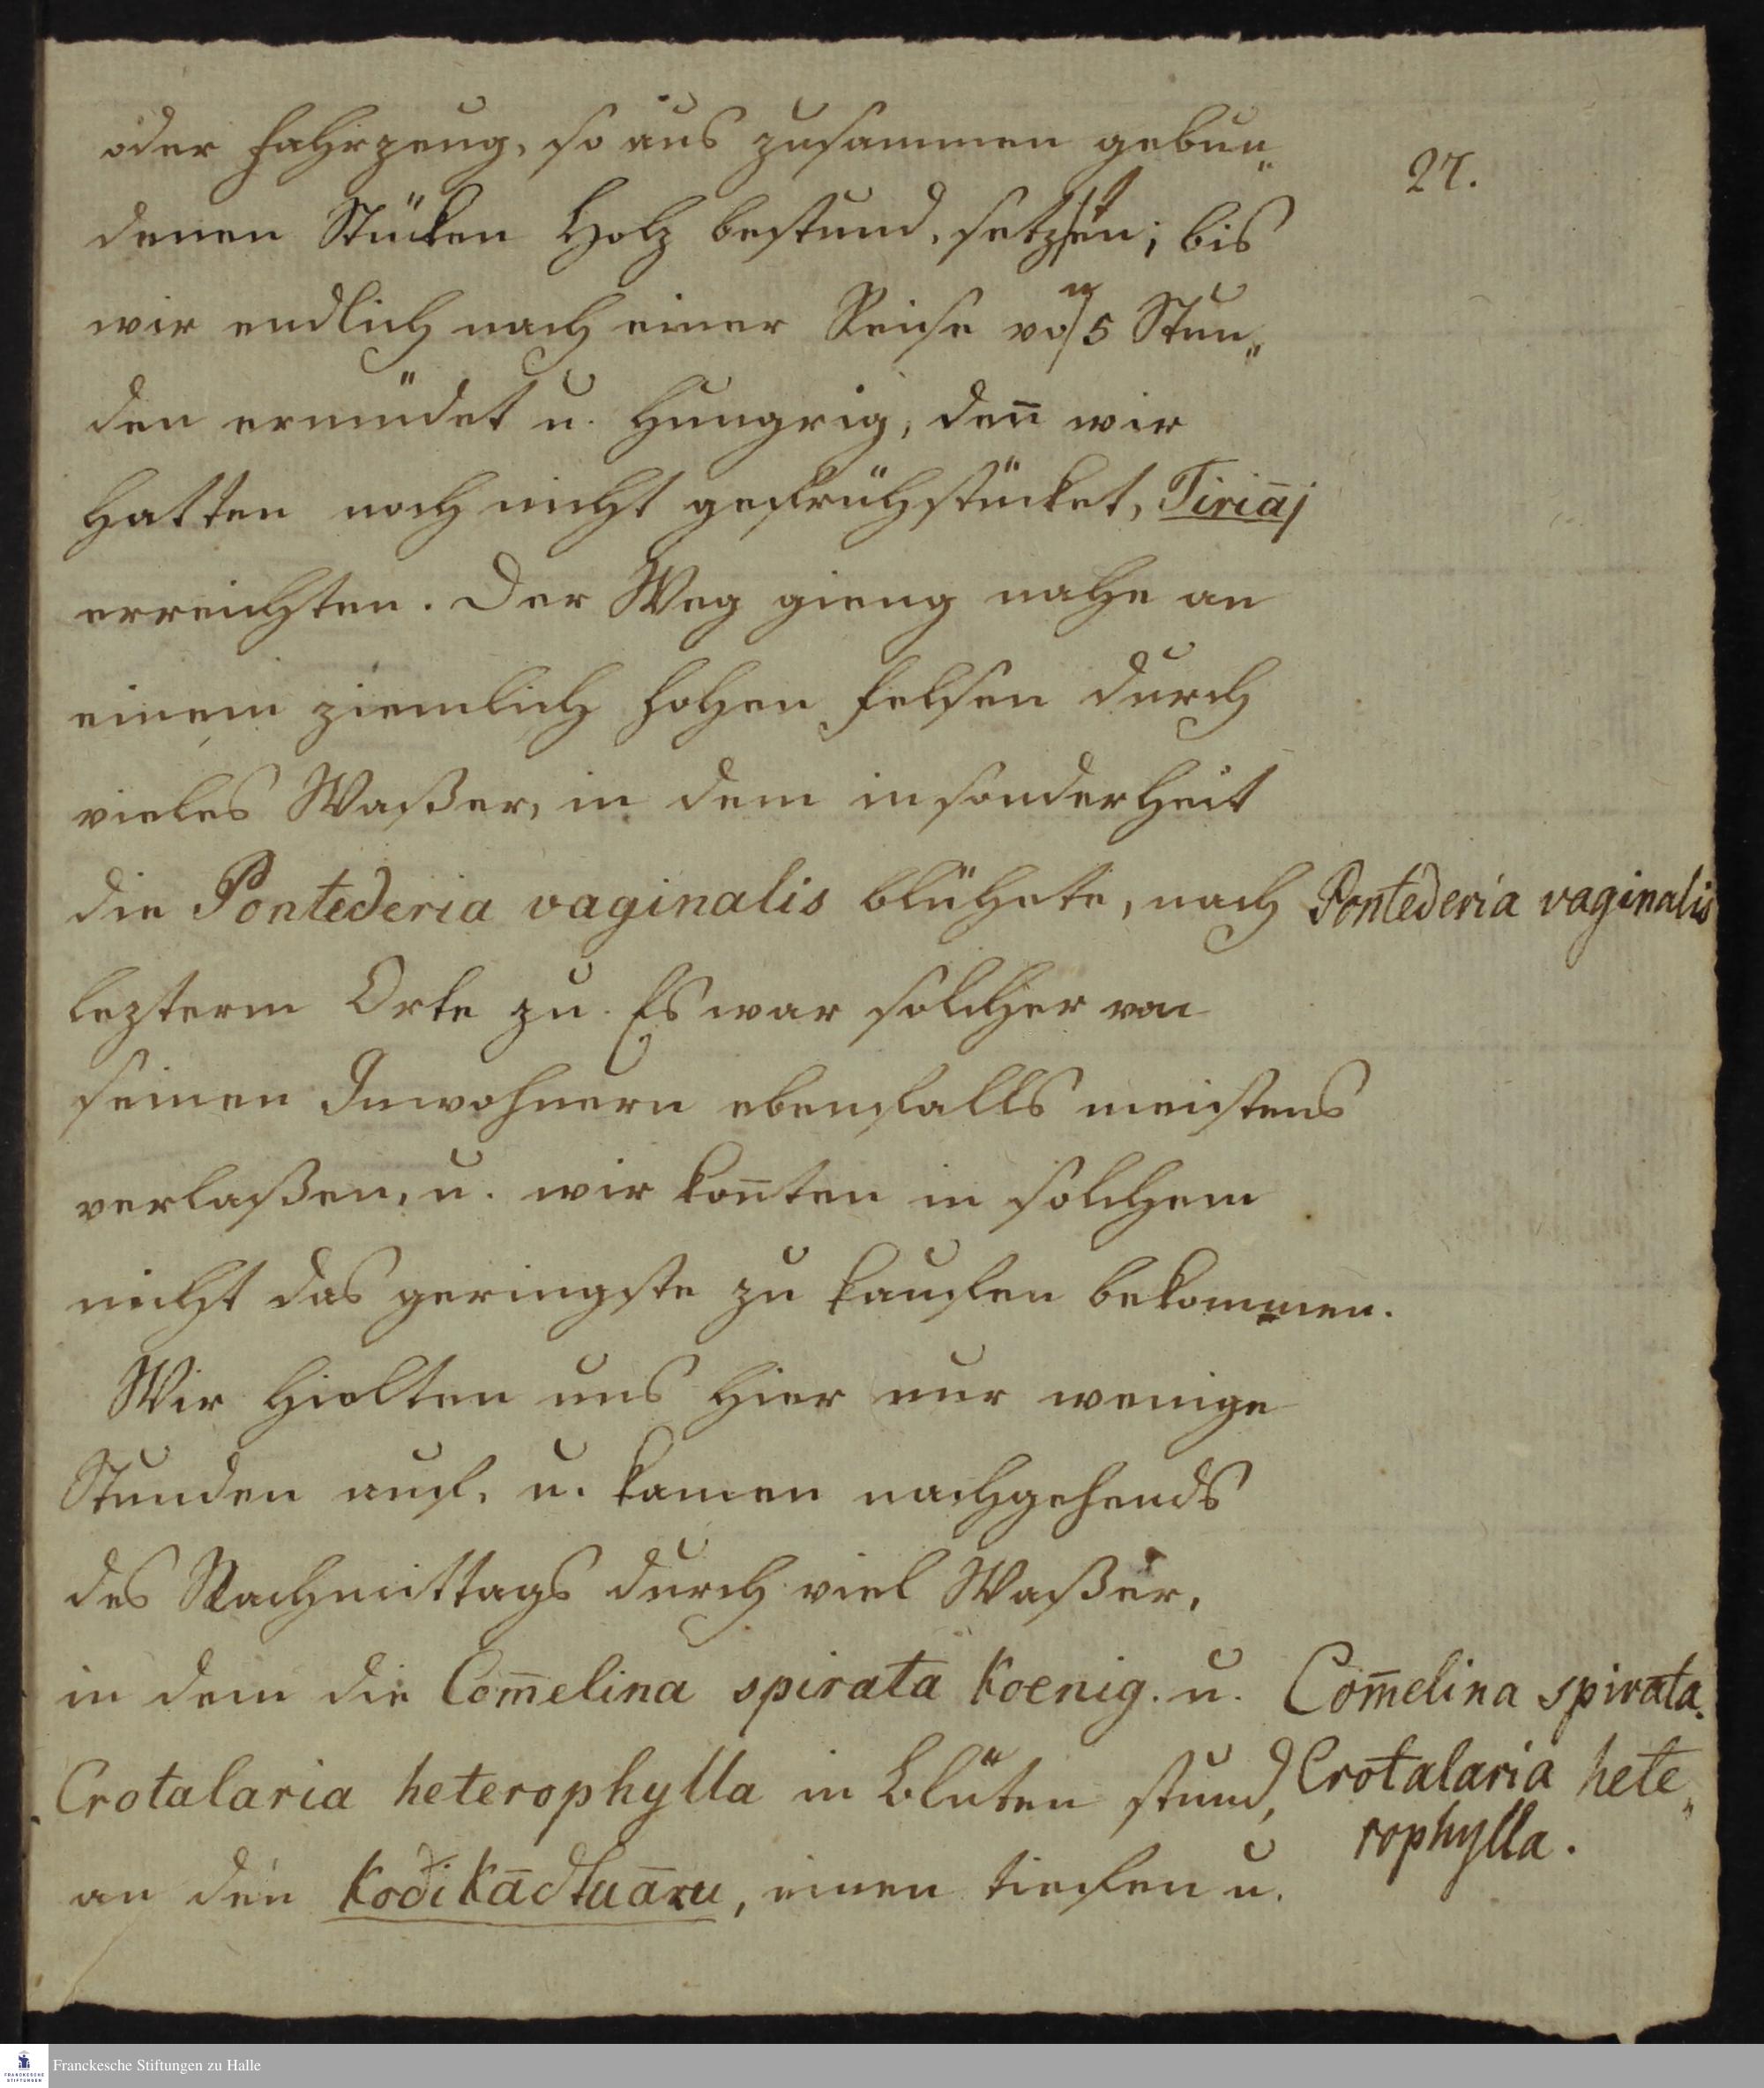 27.
oder Fahrzeug, so aus zusammen gebun„
denen Stücken Holz bestund, setzten; bis
wir endlich nach einer Reise von 5 Stun„
den ermüdet u. hungrig, den̅ wir
hatten noch nicht gefrühstücket, Tiriāj
erreichten. Der Weg gieng nahe an
einem ziemlich hohen Felsen durch
vieles Waßer, in dem insonderheit
die Pontederia vaginalis blühete, nach
Pontederia vaginalis
lezterm Orte zu. Es war solcher von
seinen Inwohnern ebenfalls meistens
verlaßen, u. wir kon̅ten in solchem
nicht das geringste zu kaufen bekommen.
Wir hielten uns hier nur wenige
Stunden auf, u. kamen nachgehends
des Nachmittags durch viel Waßer,
in dem die Com̅elina spirata Koenig. u.
Com̅elina spirata.
Crotalaria heterophylla in Blüten stund,
Crotalaria hete„
rophylla.
an den Kodikādtuāru, einen tiefen u.
Franckesche Stiftungen zu Halle
FRANCKESCHE
STIFTUNGEN